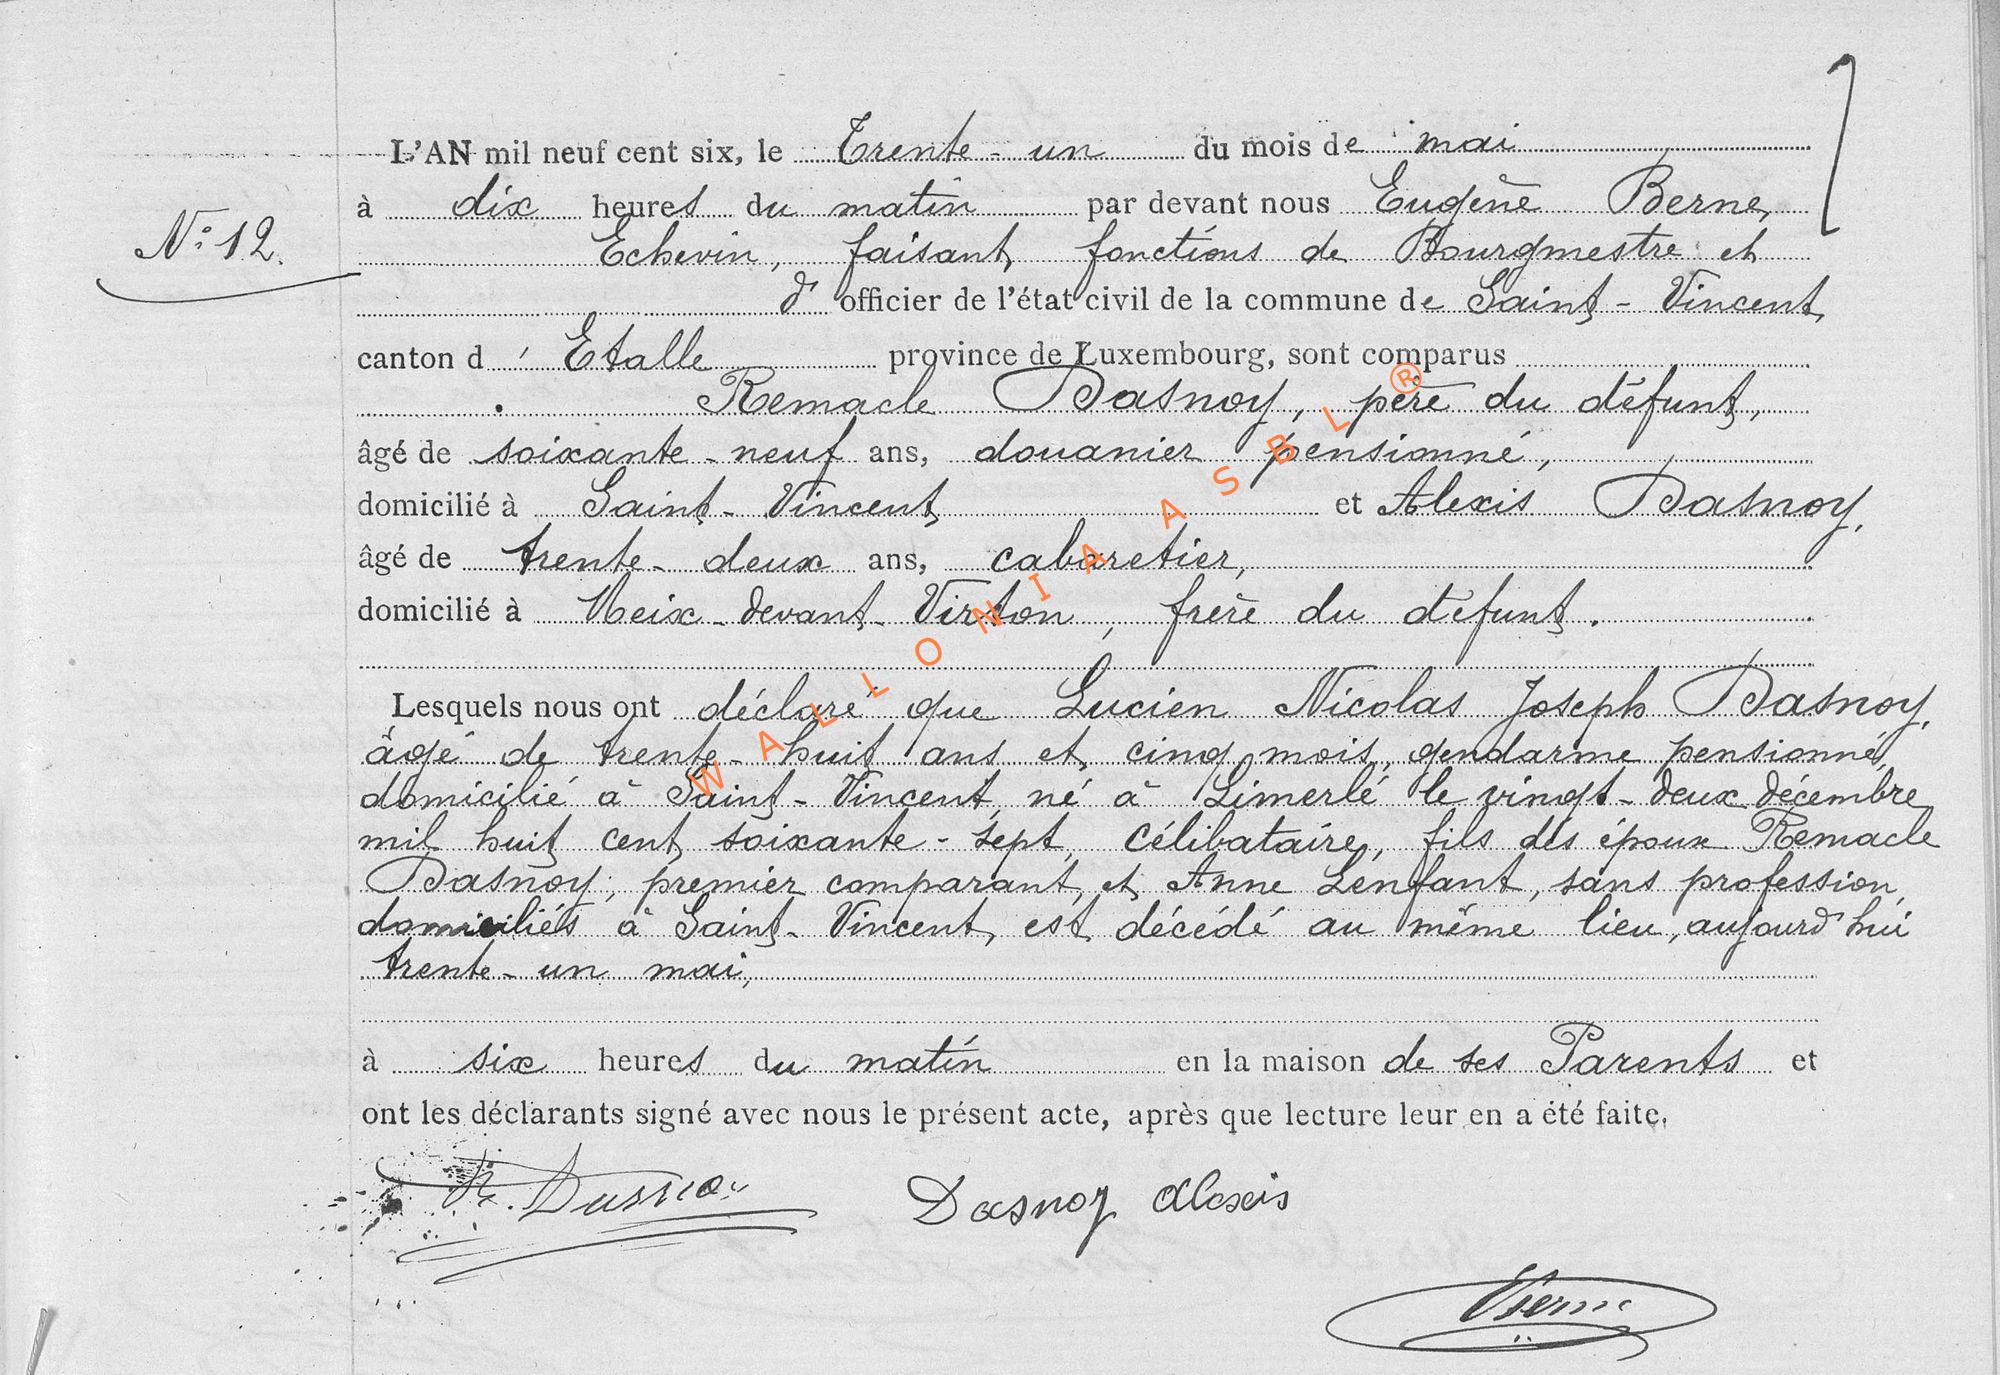 L'AN mil neuf cent six, le Trente-un du mois de mai
à dix heures du matin par devant nous Eugène Berne,
N° 12.
Echevin, faisant fonctions de Bourgmestre et
d' officier de l'état civil de la commune de Saint-Vincent,
canton d'Etalle province de Luxembourg, sont comparus
Remacle Dasnoy, père du défunt,
âgé de soixante-neuf ans, douanier pensionné,
domicilié à Saint-Vincent et Alexis Dasnoy,
âgé de trente-deux ans, cabaretier,
domicilié à Meix-devant-Virton, frère du défunt.
Lesquels nous ont déclaré que Lucien Nicolas Joseph Dasnoy,
âgé de trente-huit ans et cinq mois, gendarme pensionné,
domicilié à Saint-Vincent, né à Limerlé le vingt-deux décembre
mil huit cent soixante-sept, célibataire, fils des époux Remacle
Dasnoy, premier comparant, et Anne Lenfant, sans profession,
domiciliés à Saint-Vincent, est décédé au même lieu, aujourd'hui
trente-un mai,
à six heures du matin en la maison de ses Parents et
ont les déclarants signé avec nous le présent acte, après que lecture leur en a été faite.
R. Dasnoy Dasnoy Alexis
WALLONIA ASBL ®